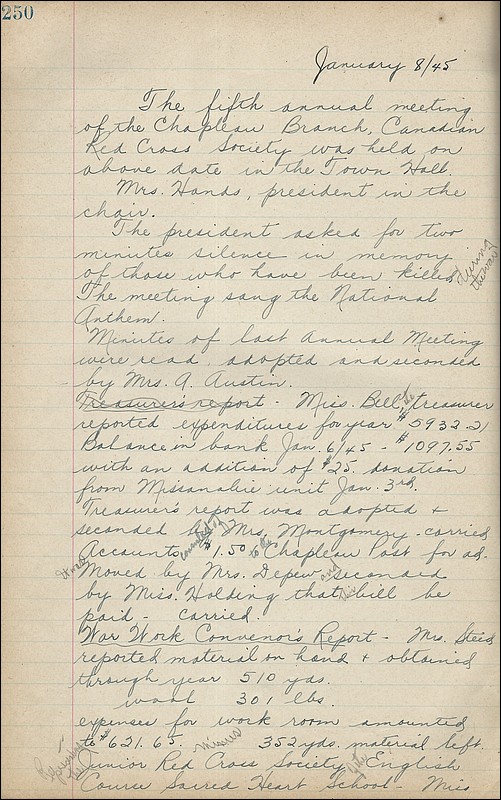 250
January 8/45
The fifth annual meeting
of the Chapleau Branch, Canadian
Red Cross Society was held on
above date in the Town Hall.
Mrs. Hands, president in the
chair.
The president asked for two
minutes silence in memory
of those who have been killed during
the war
The meeting sang the National
Anthem.
Minutes of last Annual Meeting
were read, adopted and seconded
by Mrs. A. Austin.
Treasurer's report - Miss. Bell, the treasurer
reported expenditures for year $5932.21
Balance in bank Jan. 6/45 - $1097.55
with an addition of $25. donation
from Missanabie unit Jan. 3rd.
Treasurer's report was adopted &
seconded by Mrs. Montgomery - carried
Accounts $1.50 to the Chapleau Post for ad.
Moved by Mrs. Depew and seconded
by Miss. Holding that this bill be
paid - carried.
War Work Convenor's Report - Mrs. Steed
reported material on hand & obtained
through year 510 yds.
wool 301 lbs.
expenses for work room amounted
to $621.65. minus 352 yds. material left.
Junior Red Cross Society of the English
Course Sacred Heart School - Miss